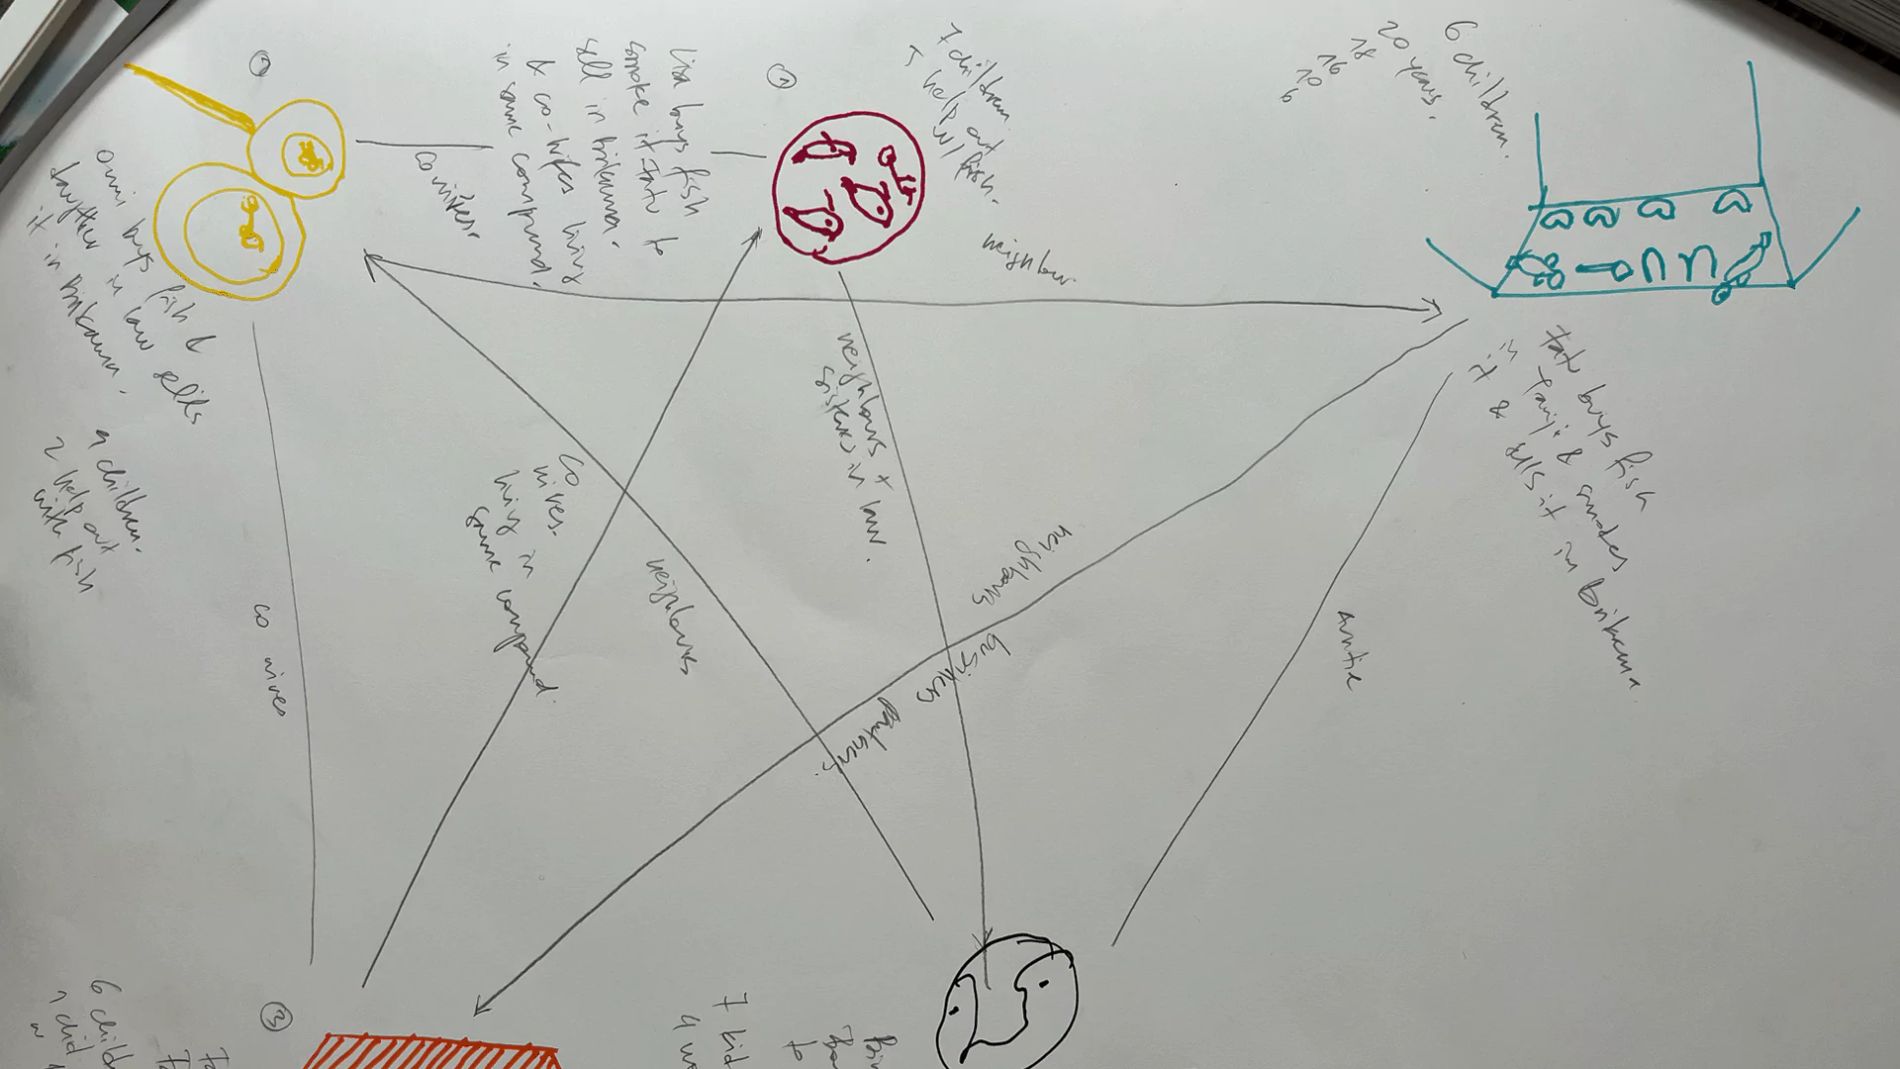 ②
co wives.
Omni buys fish &
daughter in law sells
it in Brikama.
9 children.
2 help out
with fish
Lisa buys fish
smoke it Fatu to
sell in Brikama.
& co-wifes living
in same compound.
①
7 children
5 help out
w/ fish.
6 children.
20 years.
18
16
10
6
neighbour.
Fatu buys fish
in Tanji & smokes
it & sells it in Brikama
neighbours +
sisters in law.
co
wives.
living in
same compound
neighbours
neighbours
business
partners.
Auntie
co wives
③
6 child
1 child
w
7 kid
4 w
to